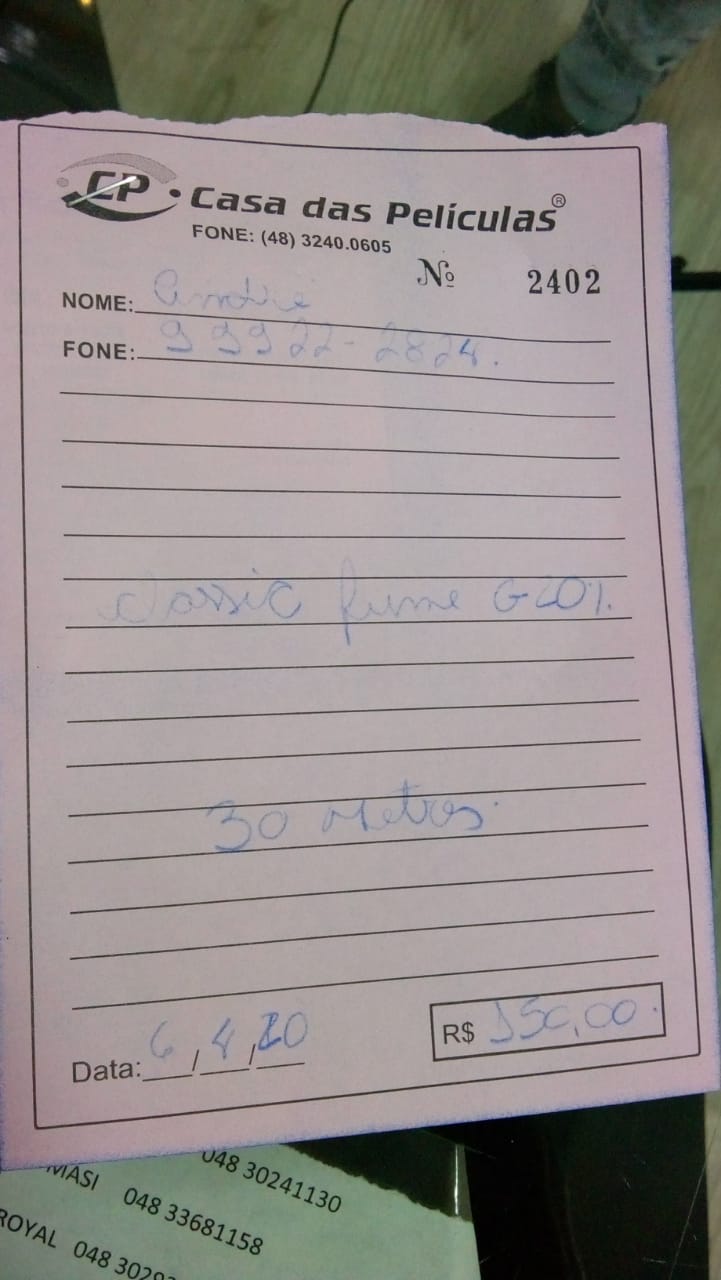 CP
Casa das Películas®
FONE: (48) 3240.0605
Nº 2402
NOME: André
FONE: 99922-2824.
classic fume G20%.
30 Metros.
Data: 6/4/20
R$ 350,00.
048 30241130
MASI 048 33681158
ROYAL 048 3029